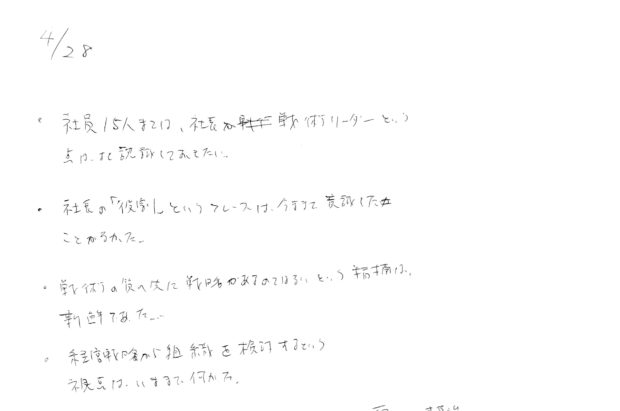 4/28
・社員15人までは、社長が戦術リーダーという
点は、よく認識しておきたい。
・社長の「役割」というフレーズは、今まで意識した
ことがなかった。
・戦術の質への次に戦略があるのではないという指摘は、
新鮮であった。
・経営戦略から組織を検討するという
視点は、いままで何かた。